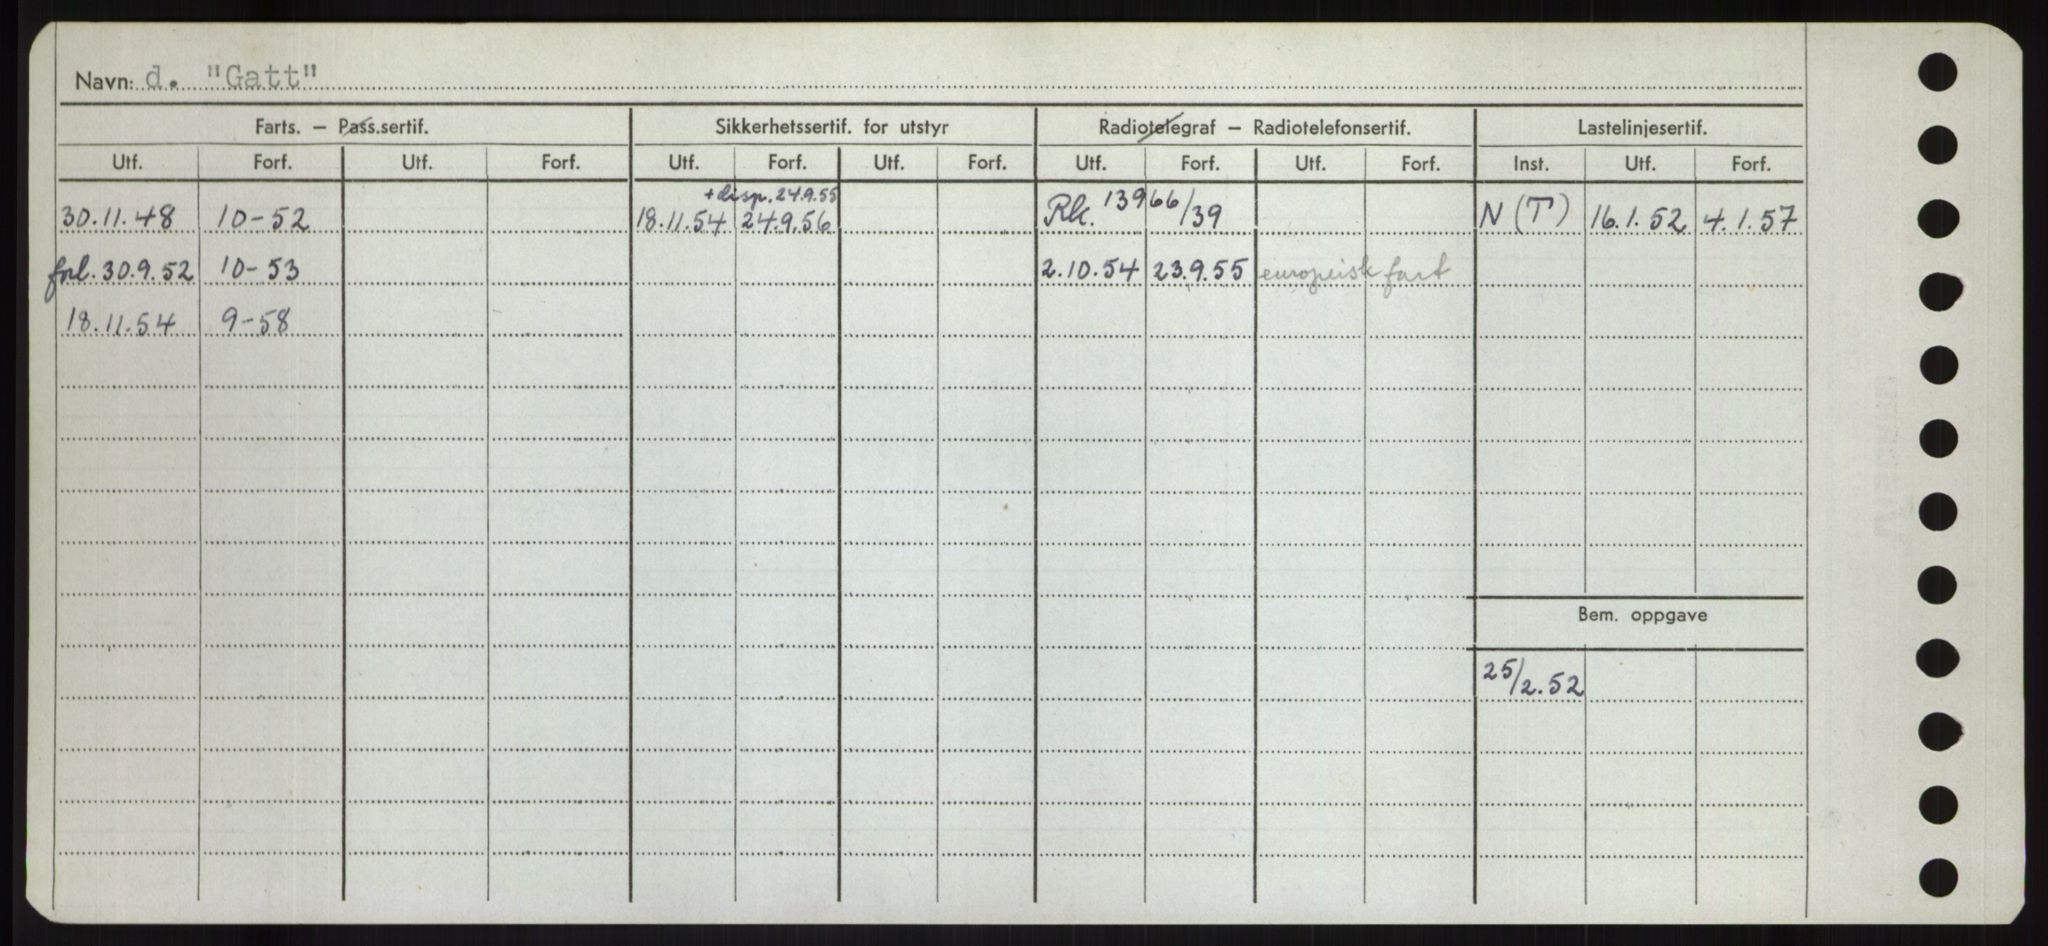 Navn: d. "Gatt"
Farts. – Pass.sertif. Sikkerhetssertif. for utstyr Radiotelegraf – Radiotelefonsertif. Lastelinjesertif.
Utf. Forf. Utf. Forf. Utf. Forf. Utf. Forf. Utf. Forf. Utf. Forf. Inst. Utf. Forf.
+disp. 24.9.55
30.11.48 10-52 18.11.54 24.9.56 Rk. 13966/39 N (T) 16.1.52 4.1.57
forl. 30.9.52 10-53 2.10.54 23.9.55 europeisk fart
18.11.54 9-58
Bem. oppgave
25/2.52